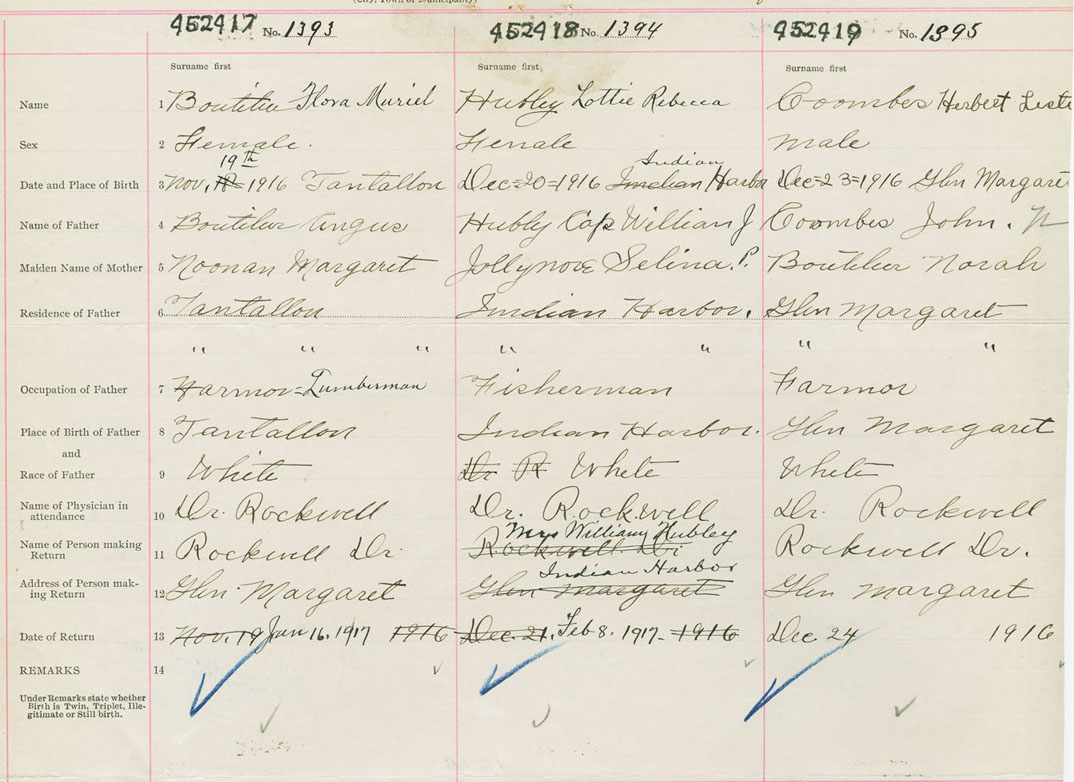 (City, Town or Municipality)
452417 No. 1393 452418 No. 1394 452419 No. 1395
Surname first Surname first Surname first
Name 1 Boutilier Flora Muriel Hubley Lottie Rebecca Coombes Herbert Leste
Sex 2 Female. Female male
19th Indian
Date and Place of Birth 3 Nov, 1916 Tantallon Dec=20=1916 Imdian Harbor Dec=23=1916 Glen Margaret
Name of Father 4 Boutilier Angus Hubley Cap William J Coombes John. N
Maiden Name of Mother 5 Noonan Margaret Jollymore Selina. P. Boutilier Norah
Residence of Father 6 Tantallon Imdian Harbor. Glen Margaret
" " " " " " "
Occupation of Father 7 Farmor=Lumberman Fisherman Farmor
Place of Birth of Father 8 Tantallon Indian Harbor. Glen Margaret
and
Race of Father 9 White Dr R White White
Name of Physician in
attendance 10 Dr. Rockwell Dr. Rockwell Dr. Rockwell
Mrs William Hubley
Name of Person making
Return 11 Rockwell Dr. Rockwell Dr Rockwell Dr.
Indian Harbor
Address of Person mak-
ing Return 12 Glen Margaret Glen Margaret Glen Margaret
Date of Return 13 Nov. 19 Jan 16. 1917 1916 Dec. 21. Feb 8. 1917- 1916 Dec 24 1916
REMARKS 14
Under Remarks state whether
Birth is Twin, Triplet, Ille-
gitimate or Still birth.